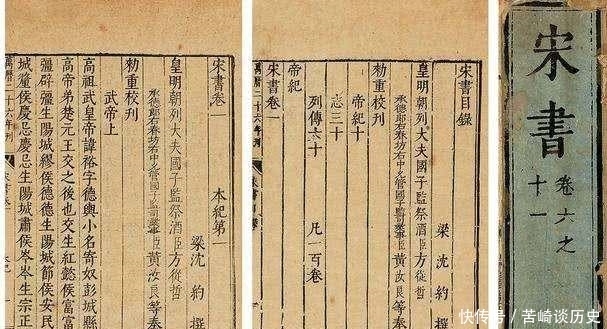 宋書
卷六之
十一
宋書目錄
梁沈約撰
皇明朝列大夫國子監祭酒臣方從哲
承德郎右春坊右中允管國子監司業事臣黃汝良等奉
勅重校刊
帝紀十
志三十
列傳六十
凡一百卷
帝紀
宋書卷一
萬曆二十六年刊
宋書卷一 本紀第一
梁沈約撰
皇明朝列大夫國子監祭酒臣方從哲
承德郎右春坊右中允管國子監司業事臣黃汝良等奉
勅重校刊
武帝上
高祖武皇帝諱裕字德輿小名寄奴彭城縣
高帝弟楚元王交之後也交生紅懿侯富富
彊辟彊生陽城繆侯德德生陽城節侯安民
城釐侯慶忌慶忌生陽城肅侯岑岑生宗正
萬曆二十六年刊
快传号/苦崎谈历史